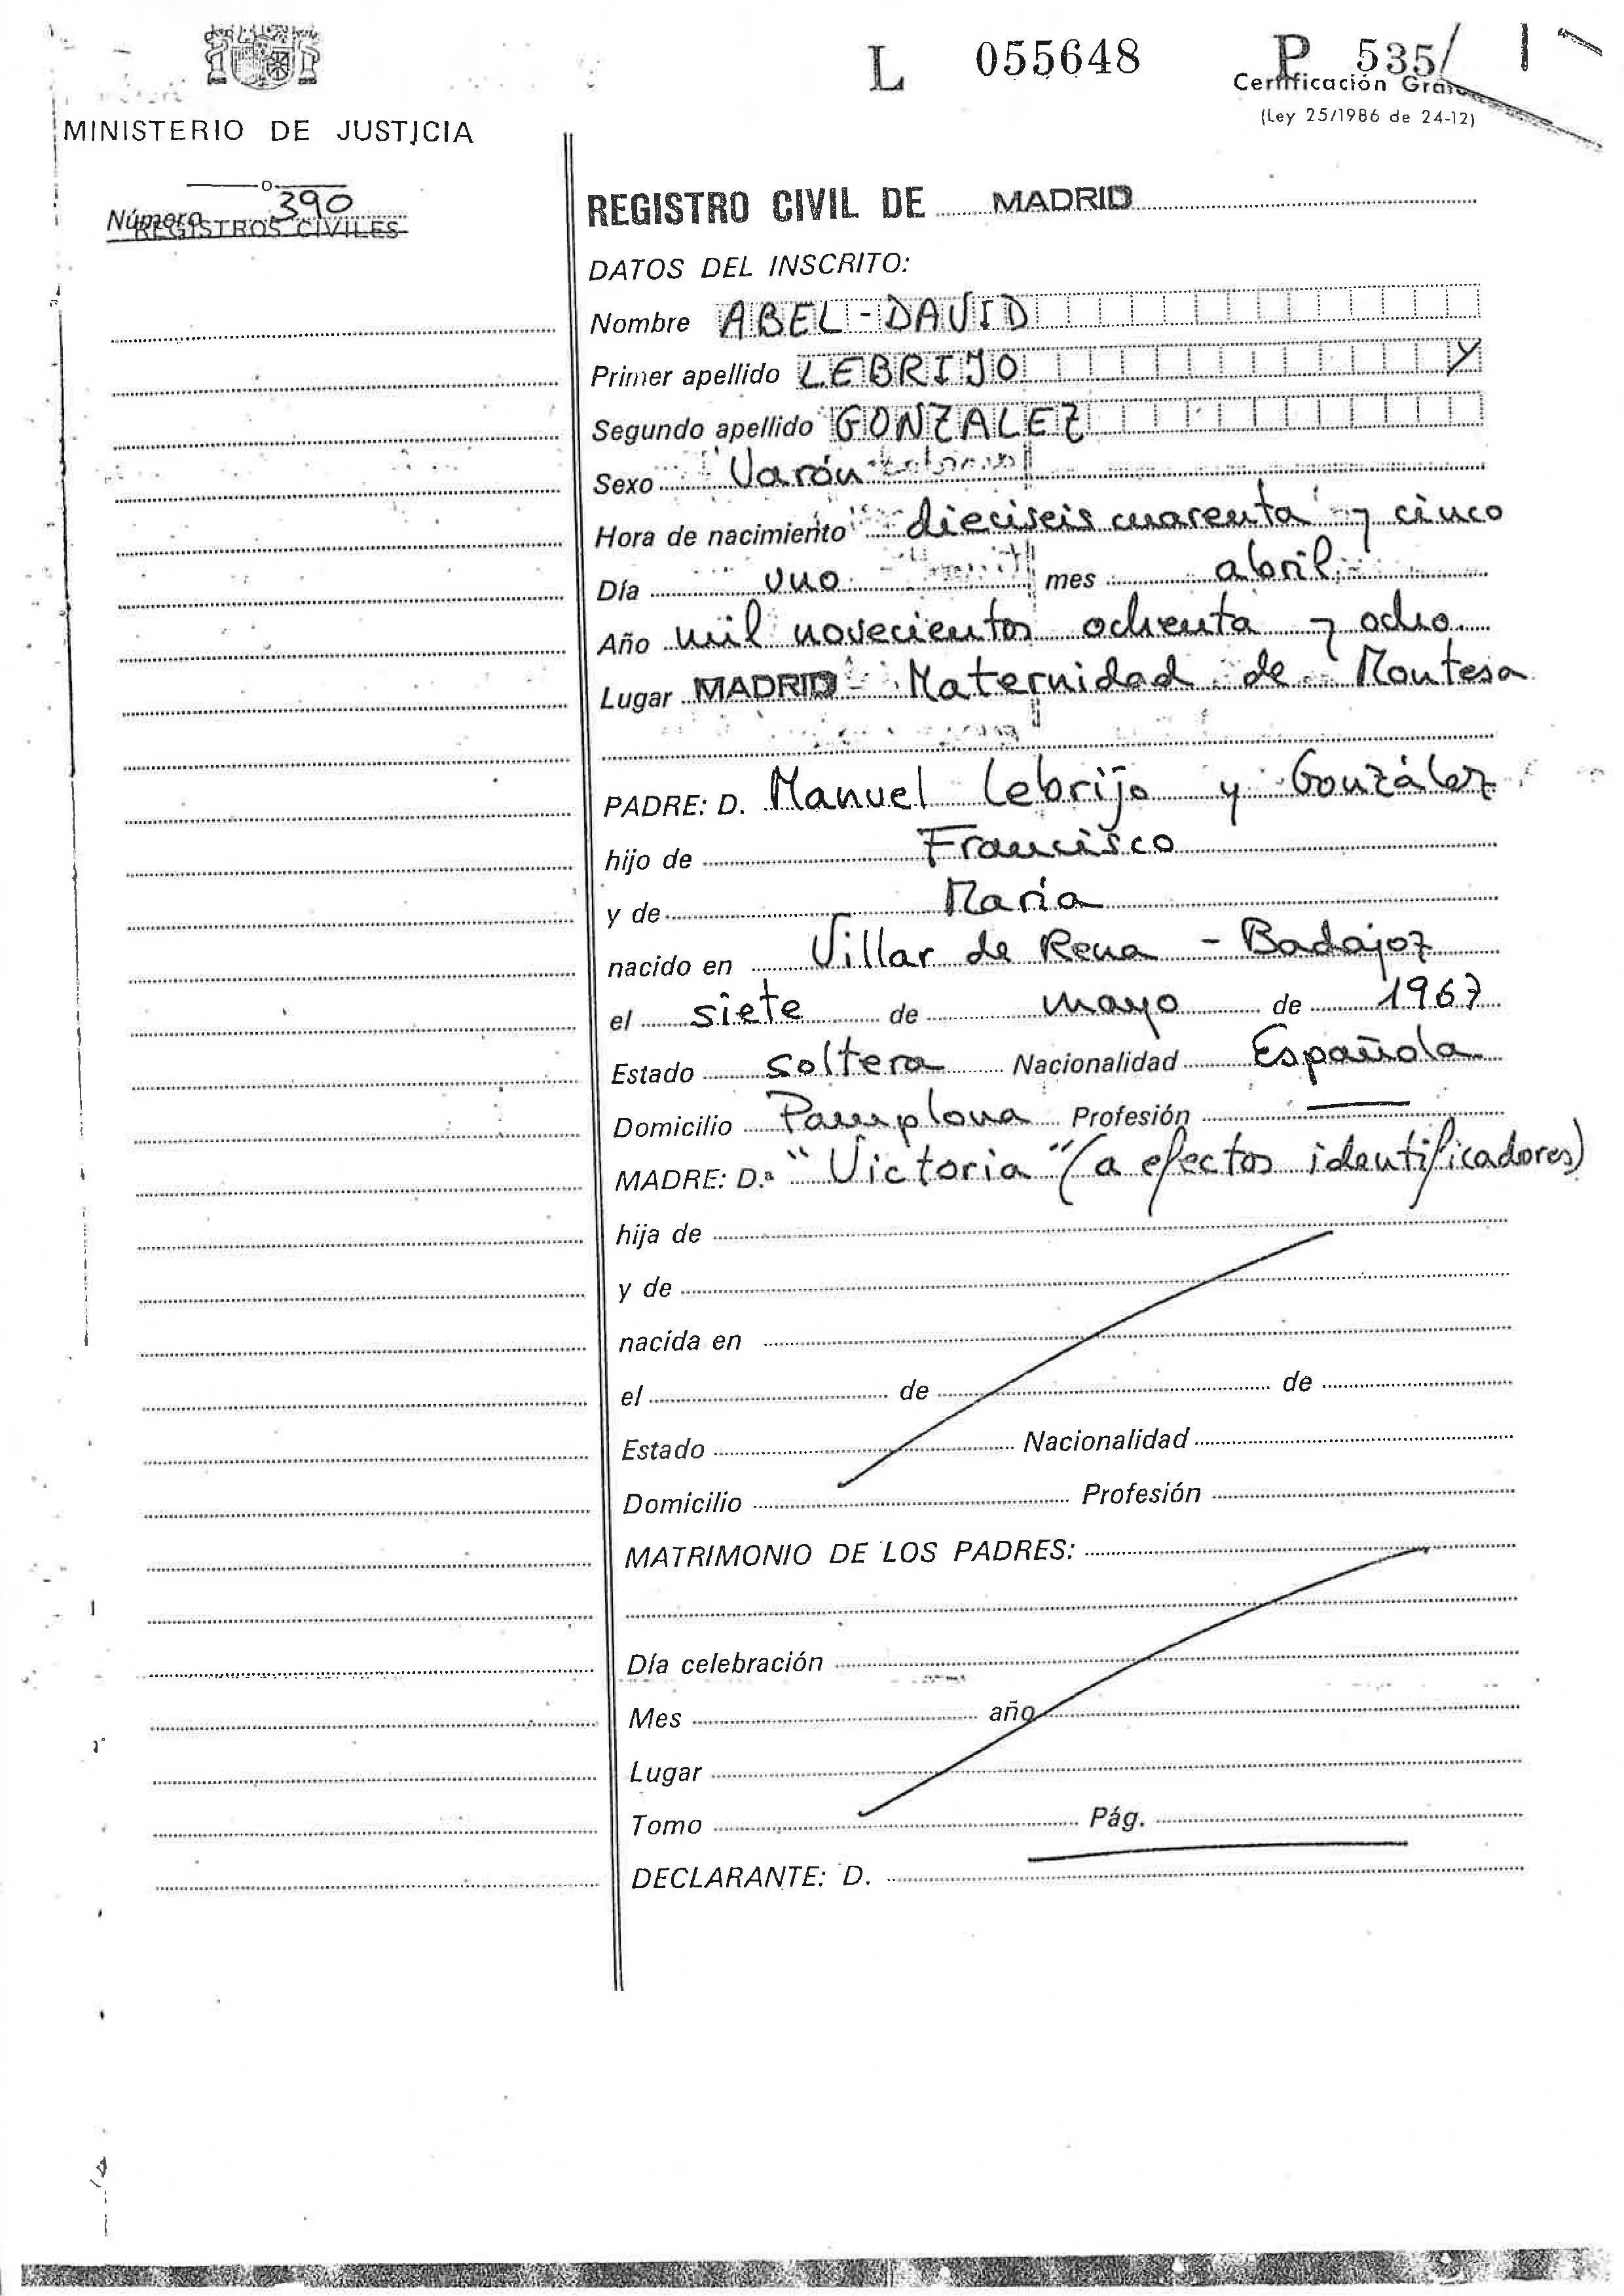 L 055648 P 535/
Certificación Gratuita
(Ley 25/1986 de 24-12)
MINISTERIO DE JUSTICIA
REGISTROS CIVILES
Número 390
REGISTRO CIVIL DE MADRID
DATOS DEL INSCRITO:
Nombre ABEL-DAVID
Primer apellido LEBRIJO Y
Segundo apellido GONZALEZ
Sexo Varón
Hora de nacimiento dieciseis cuarenta y cinco
Día uno mes abril
Año mil novecientos ochenta y ocho
Lugar MADRID - Maternidad de Montesa
PADRE: D. Manuel Lebrijo y González
hijo de Francisco
y de María
nacido en Villar de Rena - Badajoz
el siete de mayo de 1967
Estado soltera Nacionalidad Española
Domicilio Pamplona Profesión —
MADRE: D.ª "Victoria" (a efectos identificadores)
hija de
y de
nacida en
el de de
Estado Nacionalidad
Domicilio Profesión
MATRIMONIO DE LOS PADRES:
Día celebración
Mes año
Lugar
Tomo Pág.
DECLARANTE: D.